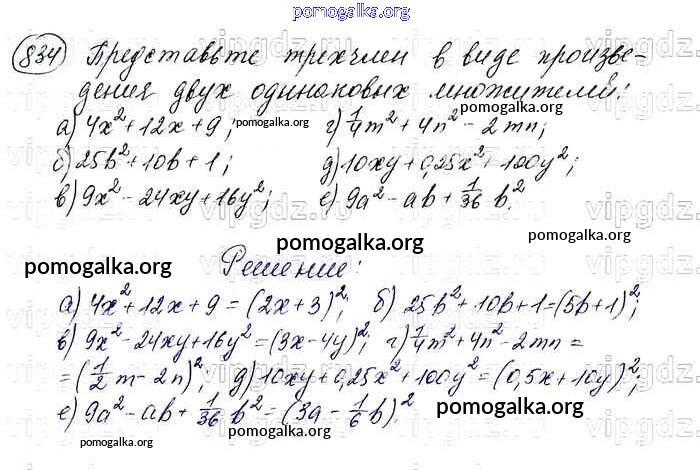 pomogalka.org
834 Представьте трехчлен в виде произве-
дения двух одинаковых множителей:
а) 4x²+12x+9; pomogalka.org г) 1/4m²+4n²-2mn;
б) 25b²+10b+1; д) 10xy+0,25x²+100y²;
в) 9x²-24xy+16y²; е) 9a²-ab+1/36 b².
pomogalka.org
pomogalka.org Решение: pomogalka.org
а) 4x²+12x+9=(2x+3)²; б) 25b²+10b+1=(5b+1)²;
в) 9x²-24xy+16y²=(3x-4y)²; г) 1/4m²+4n²-2mn=
=(1/2m-2n)²; д) 10xy+0,25x²+100y²=(0,5x+10y)²;
е) 9a²-ab+1/36 b²=(3a-1/6b)². pomogalka.org
pomogalka.org pomogalka.org
vipgdz.ru